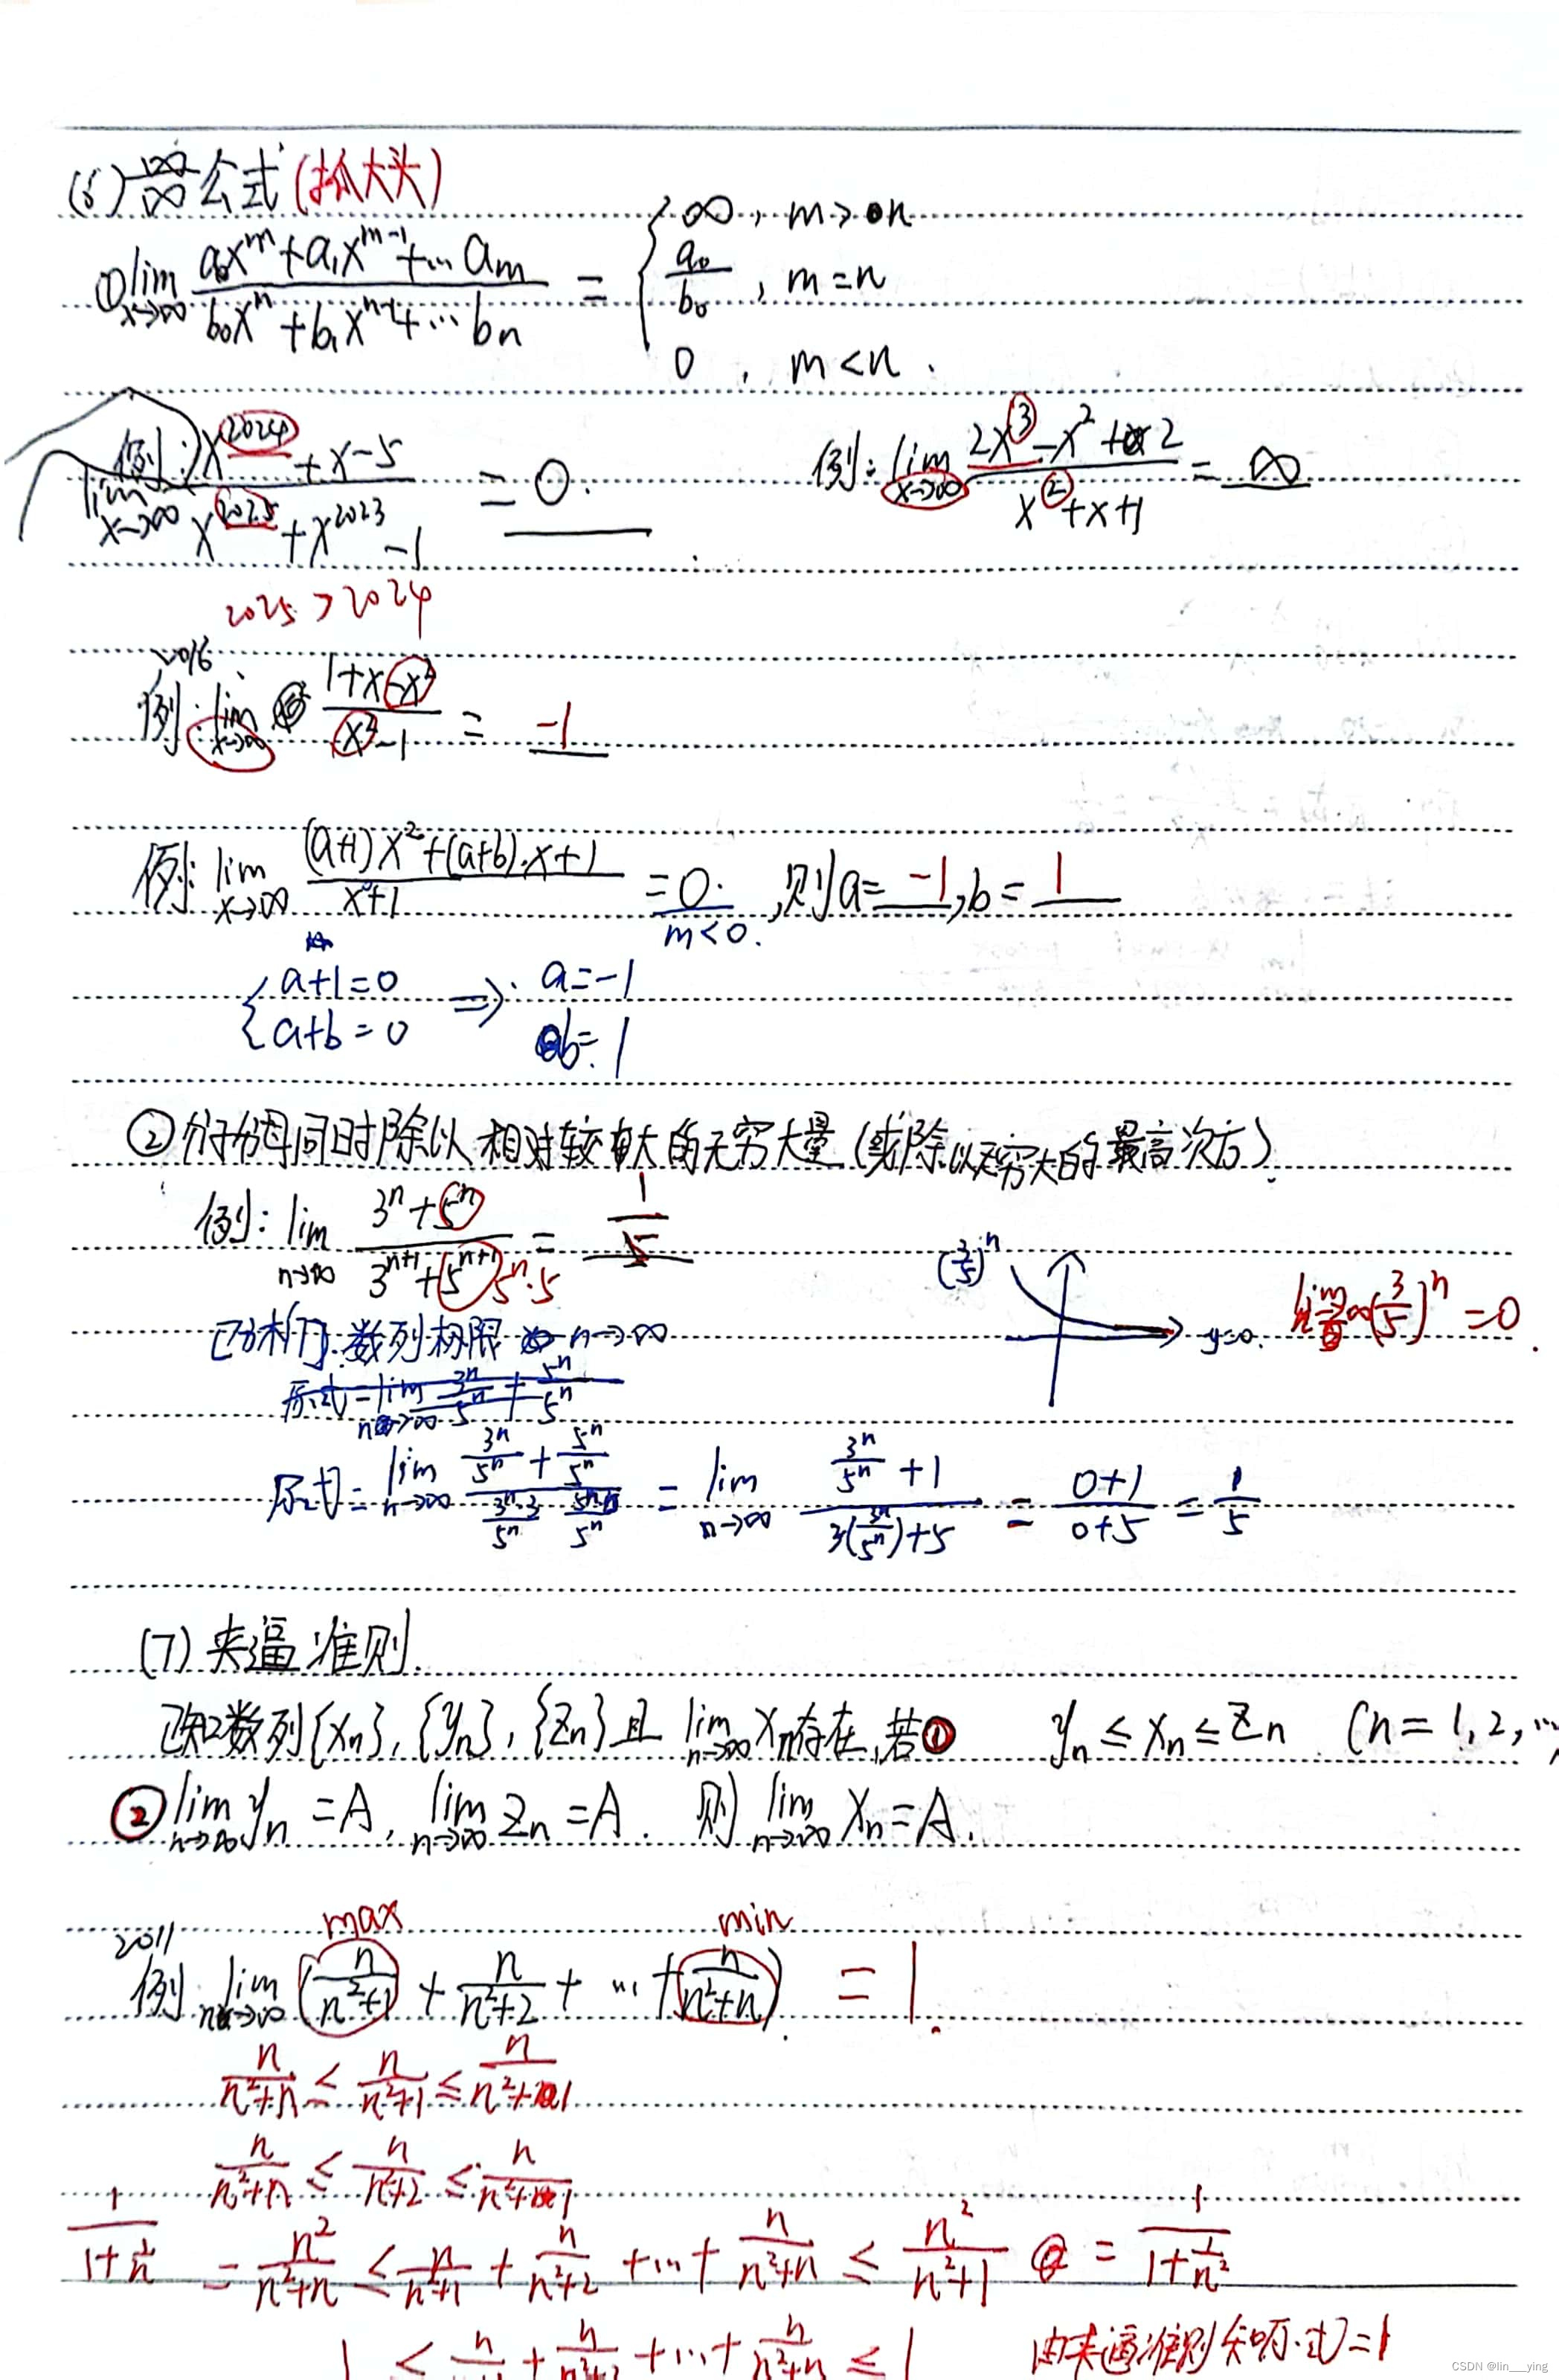 (6) ∞/∞ 公式 (抓大头)
① lim x→∞ (a₀x^m + a₁x^(m-1) + … a_m)/(b₀x^n + b₁x^(n-1) + … b_n) = { ∞, m>n
a₀/b₀, m=n
0, m<n.
例: lim x→∞ (x^2024 + x - 5)/(x^2025 + x^2023 - 1) = 0.
例: lim x→∞ (2x³ - x² + 2)/(x² + x + 1) = ∞
2025 > 2024
2016
例: lim x→∞ (1+x-x³)/(x³-1) = -1
例: lim x→∞ ((a+1)x² + (a+b)·x + 1)/(x+1) = 0. ,则 a = -1, b = 1
m<0.
{ a+1=0 ⟹ a=-1
a+b=0 b=1
② 分子分母同时除以相对较大的无穷大量 (或除以无穷大的最高次方).
例: lim n→∞ (3^n + 5^n)/(3^(n+1) + 5^(n+1)) = 1/5
5^n·5
(3/5)^n y=0. lim n→∞ (3/5)^n = 0.
数列极限 n→∞
原式 = lim n→∞ 3^n/5^n + 5^n/5^n
原式 = lim n→∞ (3^n/5^n + 5^n/5^n)/(3^n·3/5^n 5^n·5/5^n) = lim n→∞ (3^n/5^n + 1)/(3(3^n/5^n)+5) = (0+1)/(0+5) = 1/5
(7) 夹逼准则.
已知数列{xn}, {yn}, {zn} 且 lim n→∞ xn 存在, 若① yn ≤ xn ≤ zn (n = 1, 2, …,
② lim n→∞ yn = A, lim n→∞ zn = A. 则 lim n→∞ xn = A.
max min
2011
例: lim n→∞ (n/(n²+1) + n/(n²+2) + … + n/(n²+n)) = 1.
n/(n²+n) ≤ n/(n²+1) ≤ n/(n²+1)
n/(n²+n) ≤ n/(n²+2) ≤ n/(n²+1)
1/(1+1/n) = n²/(n²+n) ≤ n/(n²+1) + n/(n²+2) + … + n/(n²+n) ≤ n²/(n²+1) = 1/(1+1/n²)
1 ≤ n/(n²+1) + n/(n²+2) + … + n/(n²+n) ≤ 1 由夹逼准则知原式=1
CSDN @lin___ying